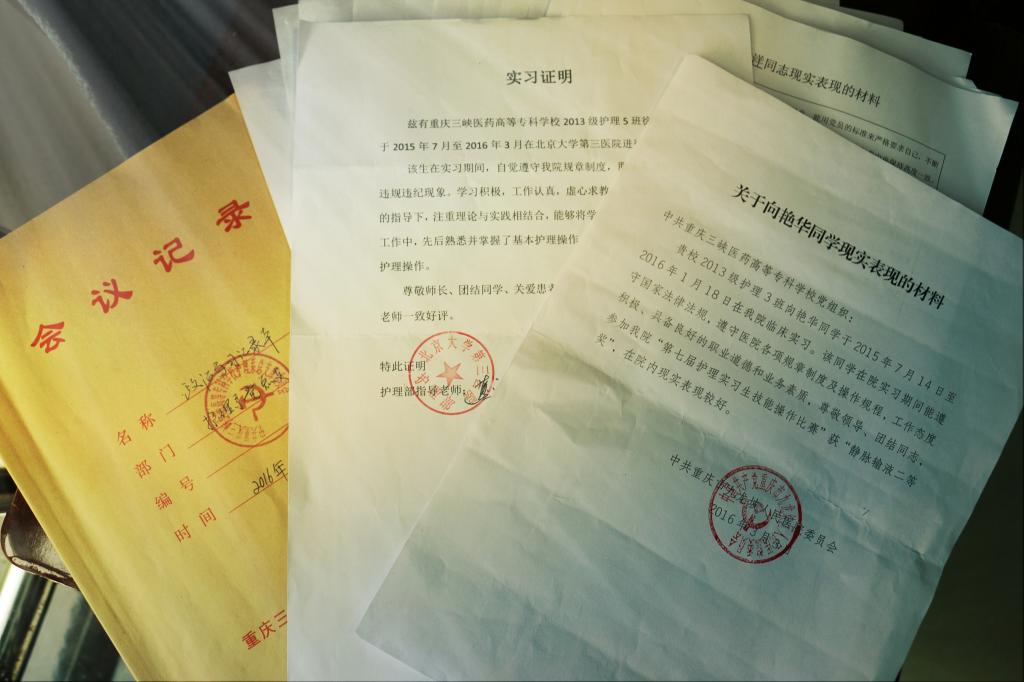 会议记录
名称
部门
编号
时间 2016年
重庆三
实习证明
兹有重庆三峡医药高等专科学校 2013 级护理 5 班
于 2015 年 7 月至 2016 年 3 月在北京大学第三医院进
该生在实习期间，自觉遵守我院规章制度，
违规违纪现象。学习积极，工作认真，虚心求教
的指导下，注重理论与实践相结合，能够将学
工作中，先后熟悉并掌握了基本护理操作
护理操作。
尊敬师长、团结同学、关爱患
老师一致好评。
特此证明
护理部指导老师：
北京大学第三
同志现实表现的材料
能用党员的标准来严格要求自己，不断
关于向艳华同学现实表现的材料
中共重庆三峡医药高等专科学校党组织：
贵校 2013 级护理 3 班向艳华同学于 2015 年 7 月 14 日至
2016 年 1 月 18 日在我院临床实习。该同学在院实习期间能遵
守国家法律法规，遵守医院各项规章制度及操作规程，工作态度
积极、具备良好的职业道德和业务素质，尊敬领导、团结同志，
参加我院“第七届护理实习生技能操作比赛”获“静脉输液二等
奖”，在院内现实表现较好。
中共重庆市 人民医院委员会
2016 年 3 月